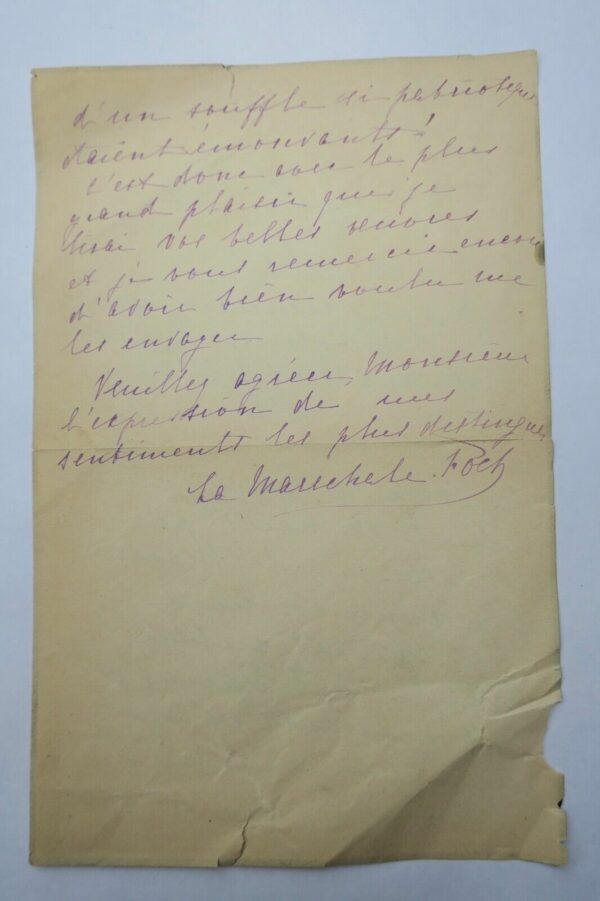 d'un souffle si patriotique
étaient émouvants !
C'est donc avec le plus
grand plaisir que je
lirai vos belles œuvres
et je vous remercie encore
d'avoir bien voulu me
les envoyer
Veuillez agréer, Monsieur
l'expression de mes
sentiments les plus distingués
La Maréchale Foch